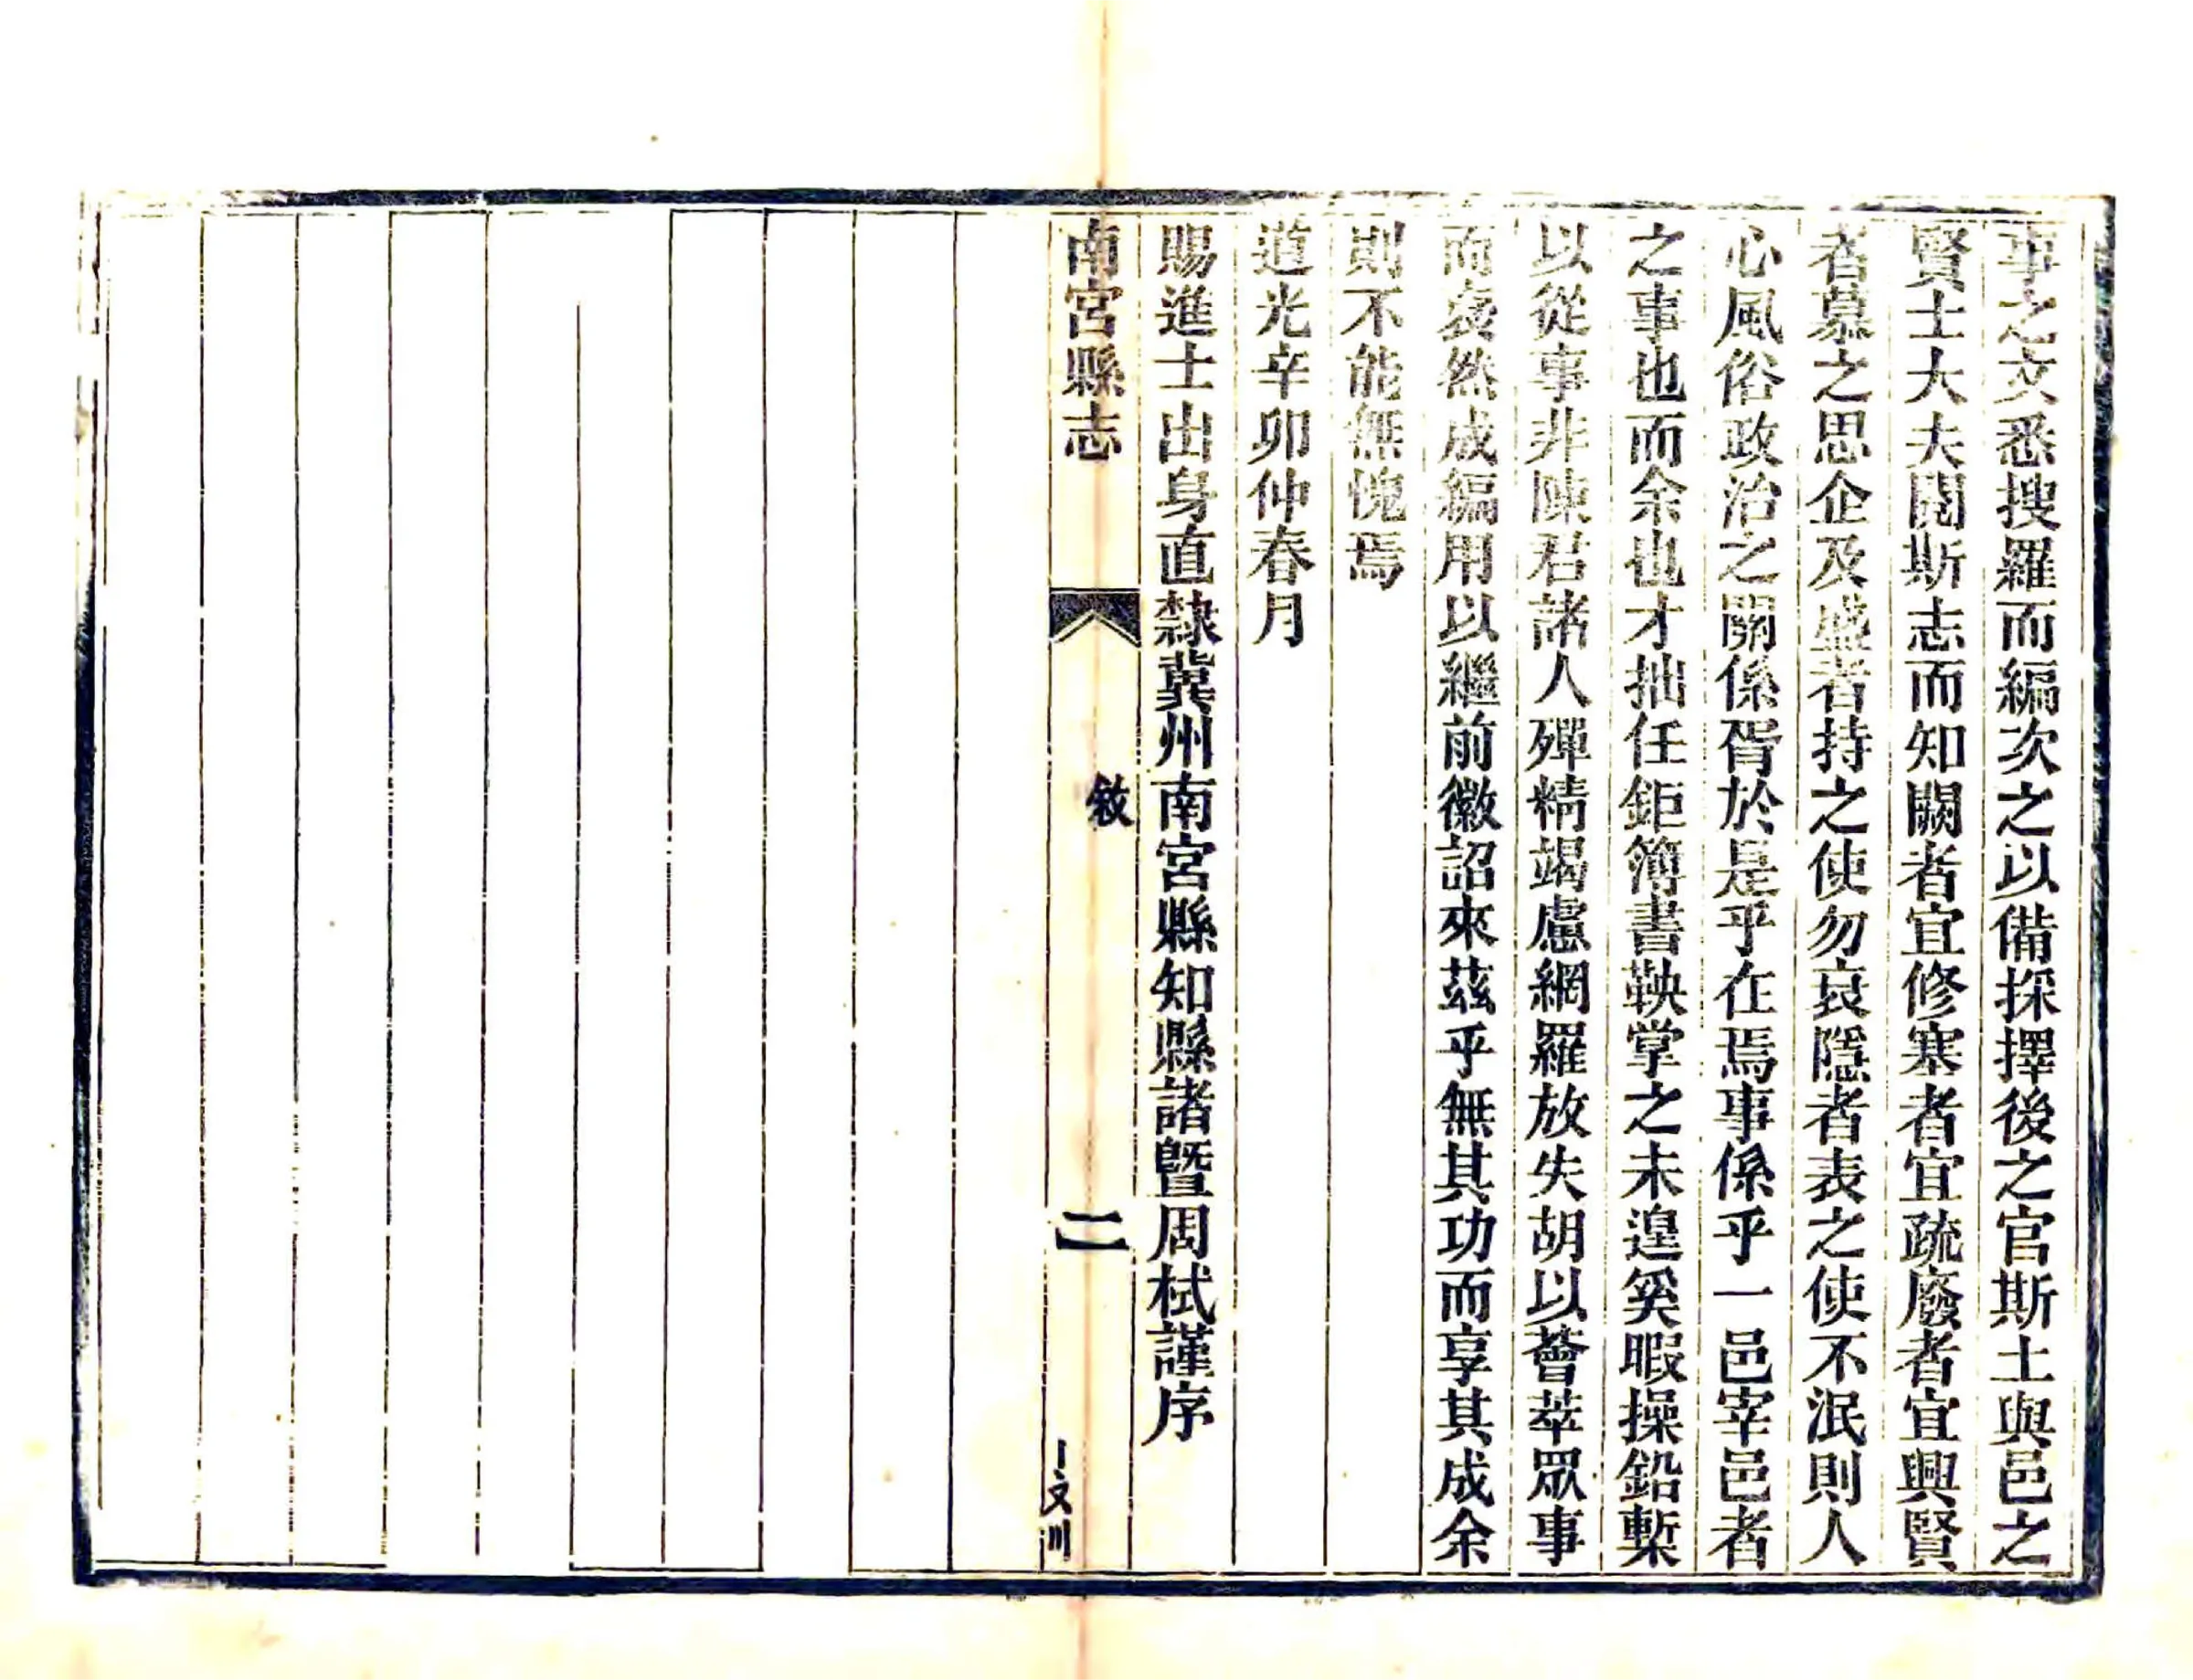 事之文悉搜羅而編次之以備採擇後之官斯土與邑之
賢士大夫閱斯志而知闕者宜修塞者宜疏廢者宜興賢
者慕之思企及盛者持之使勿衰隱者表之使不泯則人
心風俗政治之關係胥於是乎在焉事係乎一邑宰邑者
之事也而余也才拙任鉅簿書鞅掌之未遑奚暇操鉛槧
以從事非陳君諸人殫精竭慮網羅放失胡以薈萃眾事
而裒然成編用以繼前徽詔來茲乎無其功而享其成余
則不能無愧焉
道光辛卯仲春月
賜進士出身直隸冀州南宮縣知縣諸暨周栻謹序
南宮縣志
敘
二